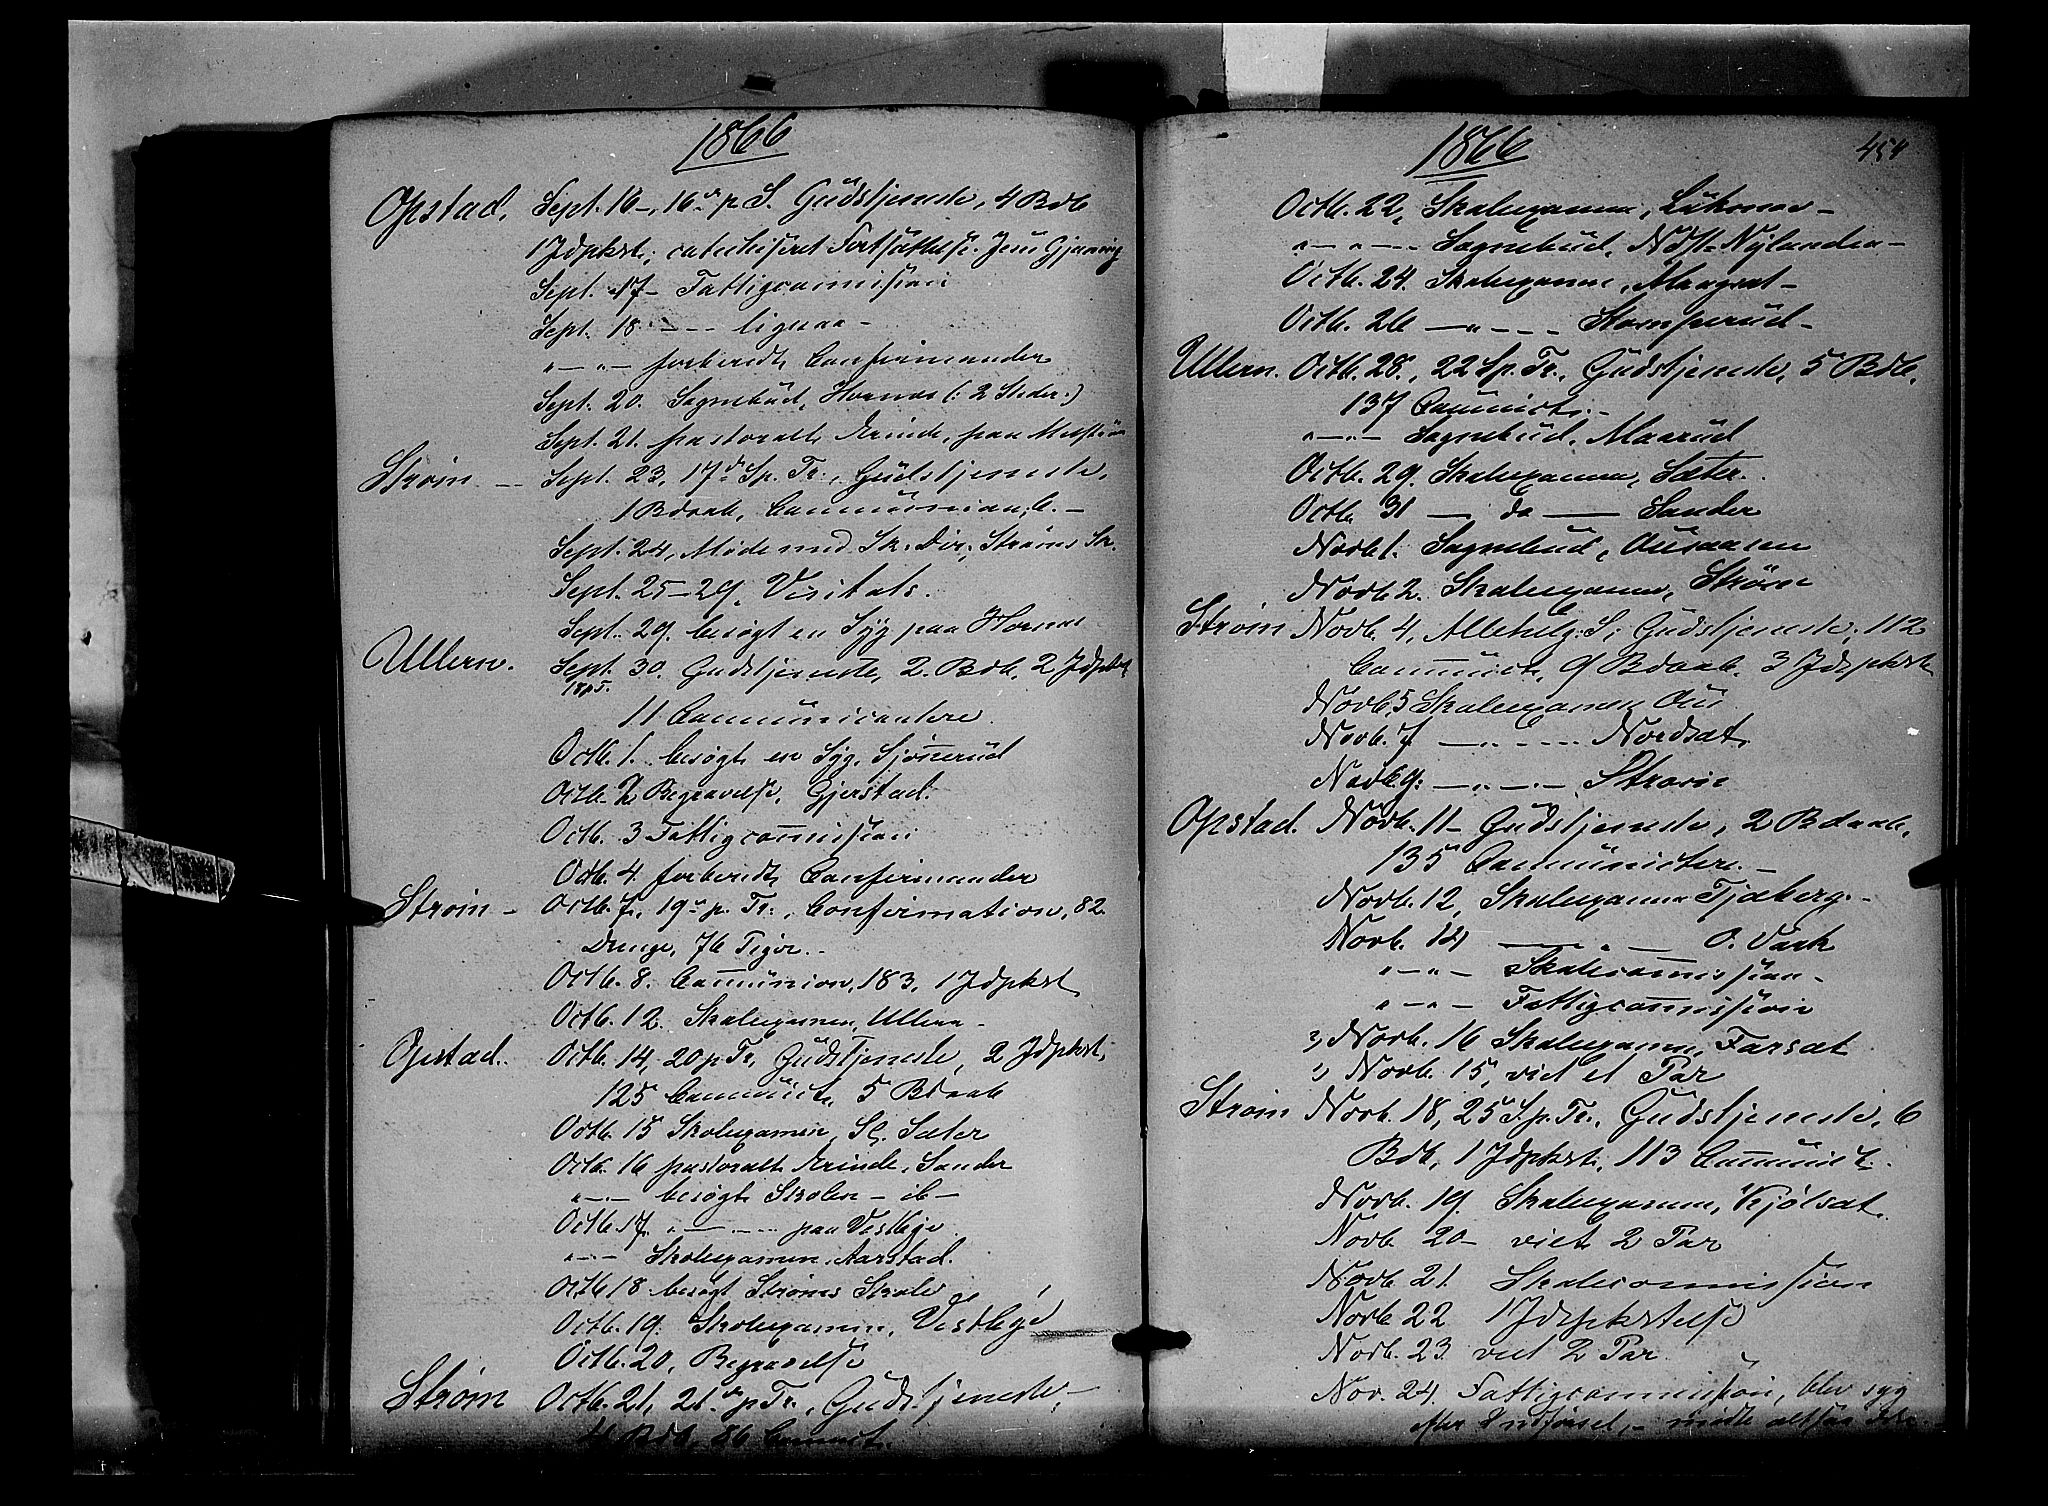 1866
Opstad, Sept. 16, 16de p. S. Gudstjeneste, 4 Bdb
1 Jdpkst; catechiseret Fortsættelse Jesu Gjerning
Sept. 17 - Fattigcommission
Sept. 18 - - - ligesaa -
" - " - forberedt Confirmander
Sept. 20. Sognebud, Hornæs (: 2 Steder :)
Sept. 21. pastoralt Erinde, paa
Strøm - Sept. 23, 17de S. p. Tr., Gudstjeneste,
1 Bdaab, Communion, 6. -
Sept. 24, Møde med Sk. Dir., Strøms Sk.
Sept. 25-29, Visitats.
Sept. 29. besøgt en Syg paa Hornæs
Ullern. Sept. 30. Gudstjeneste, 2 Bdb, 2 Jdpkst
11 Communicantere.
Octb. 1. besøgt en Syg, Sjønerud
Octb. 2 Begravelse, Gjerstad.
Octb. 3 Fattigcommission
Octb. 4. forberedt Confirmander
Strøm - Octb. 7, 19de p. Tr., Confirmation, 82
Drenge, 76 Piger.
Octb. 8. Communion, 183, 1 Jdpkst
Octb. 12. Skolexamen, Ullern -
Opstad. Octb. 14, 20 p Tr, Gudstjeneste, 2 Jdpkst,
125 Communict, 5 Bdaab
Octb. 15 Skolexamen, Sl. Sæter
Octb. 16 pastoralt Erinde, Sander
" - " - besøgt Skolen - ib -
Octb. 17. " - - - - paa Vestbye
" - " - Skolexamen, Aarstad.
Octb. 18 besøgt Strøms Skole
Octb. 19. Skolexamen, Vestbye
Octb. 20, Begravelse
Strøm Octb. 21, 21de p Tr., Gudstjeneste,
4 Bdb, 86 Commct.
1866 454
Octb. 22, Skolexamen,
" - " - - - Sognebud, Nylandea -
Octb. 24. Skolexamen,
Octb. 26 - " - - - Stomperud -
Ullern. Octb. 28., 22 S. p. Tr., Gudstjeneste, 5 Bdb,
137 Communict. -
" - " - Sognebud, Maarud
Octb. 29. Skolexamen, Sæter.
Octb. 31 - do - Sander
Novb. 1. Sognebud, Ausaasen
Novb. 2. Skolexamen, Strøm
Strøm Novb. 4, Allehelg: S; Gudstjeneste, 112
Communict, 9 Bdaab, 3 Jdpkst
Novb. 5 Skolexamen Ou
Novb. 7 - " - - - Nordsæt.
Novb. 9. - " - " - Strøm
Opstad. Novb. 11 - Gudstjeneste, 2 Bdaab,
135 Communictere. -
Novb. 12, Skolexamen Tjaberg. -
Novb. 14 - " - O. Vark
" - " - Skolecommission -
" - " - Fattigcommission
2) Novb. 16 Skolexamen, Farsæt
1) Novb. 15, viet et Par
Strøm Novb. 18, 25 S. p. Tr., Gudstjeneste, 6
Bdb, 1 Jdpkst, 113 Communict.
Novb. 19. Skolexamen, Kjølsæt.
Novb. 20 - viet 2 Par
Novb. 21 Skolecommission
Novb. 22 1 Jdpkstelse
Novb. 23. viet 2 Par
Nov. 24. Fattigcommission, blev syg
- mødte altsaa ikke -